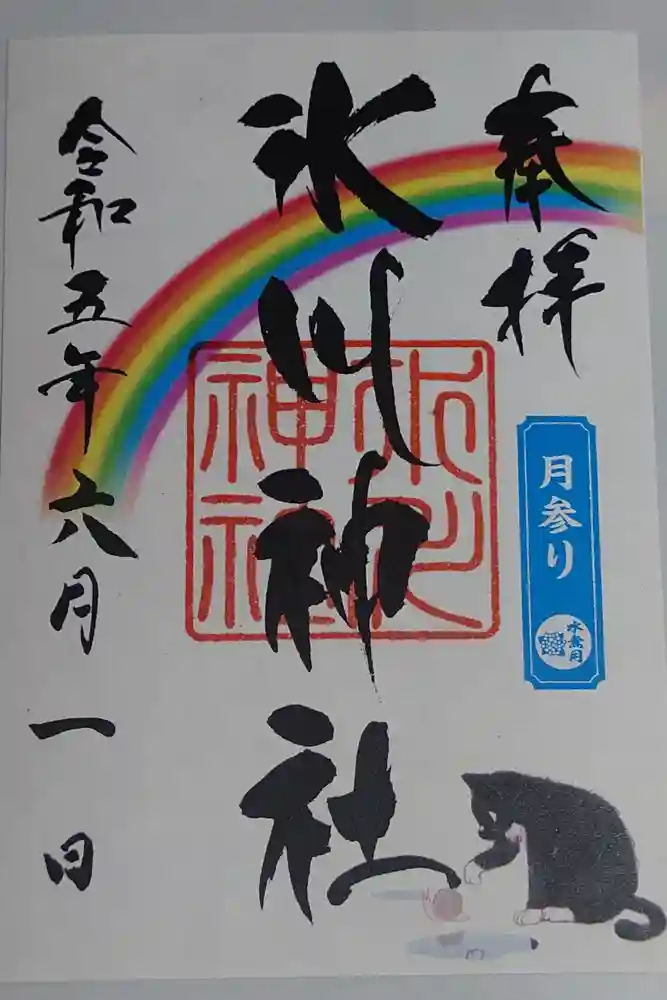 奉拝
月参り
水無月
氷川神社
氷川神社
令和五年六月一日